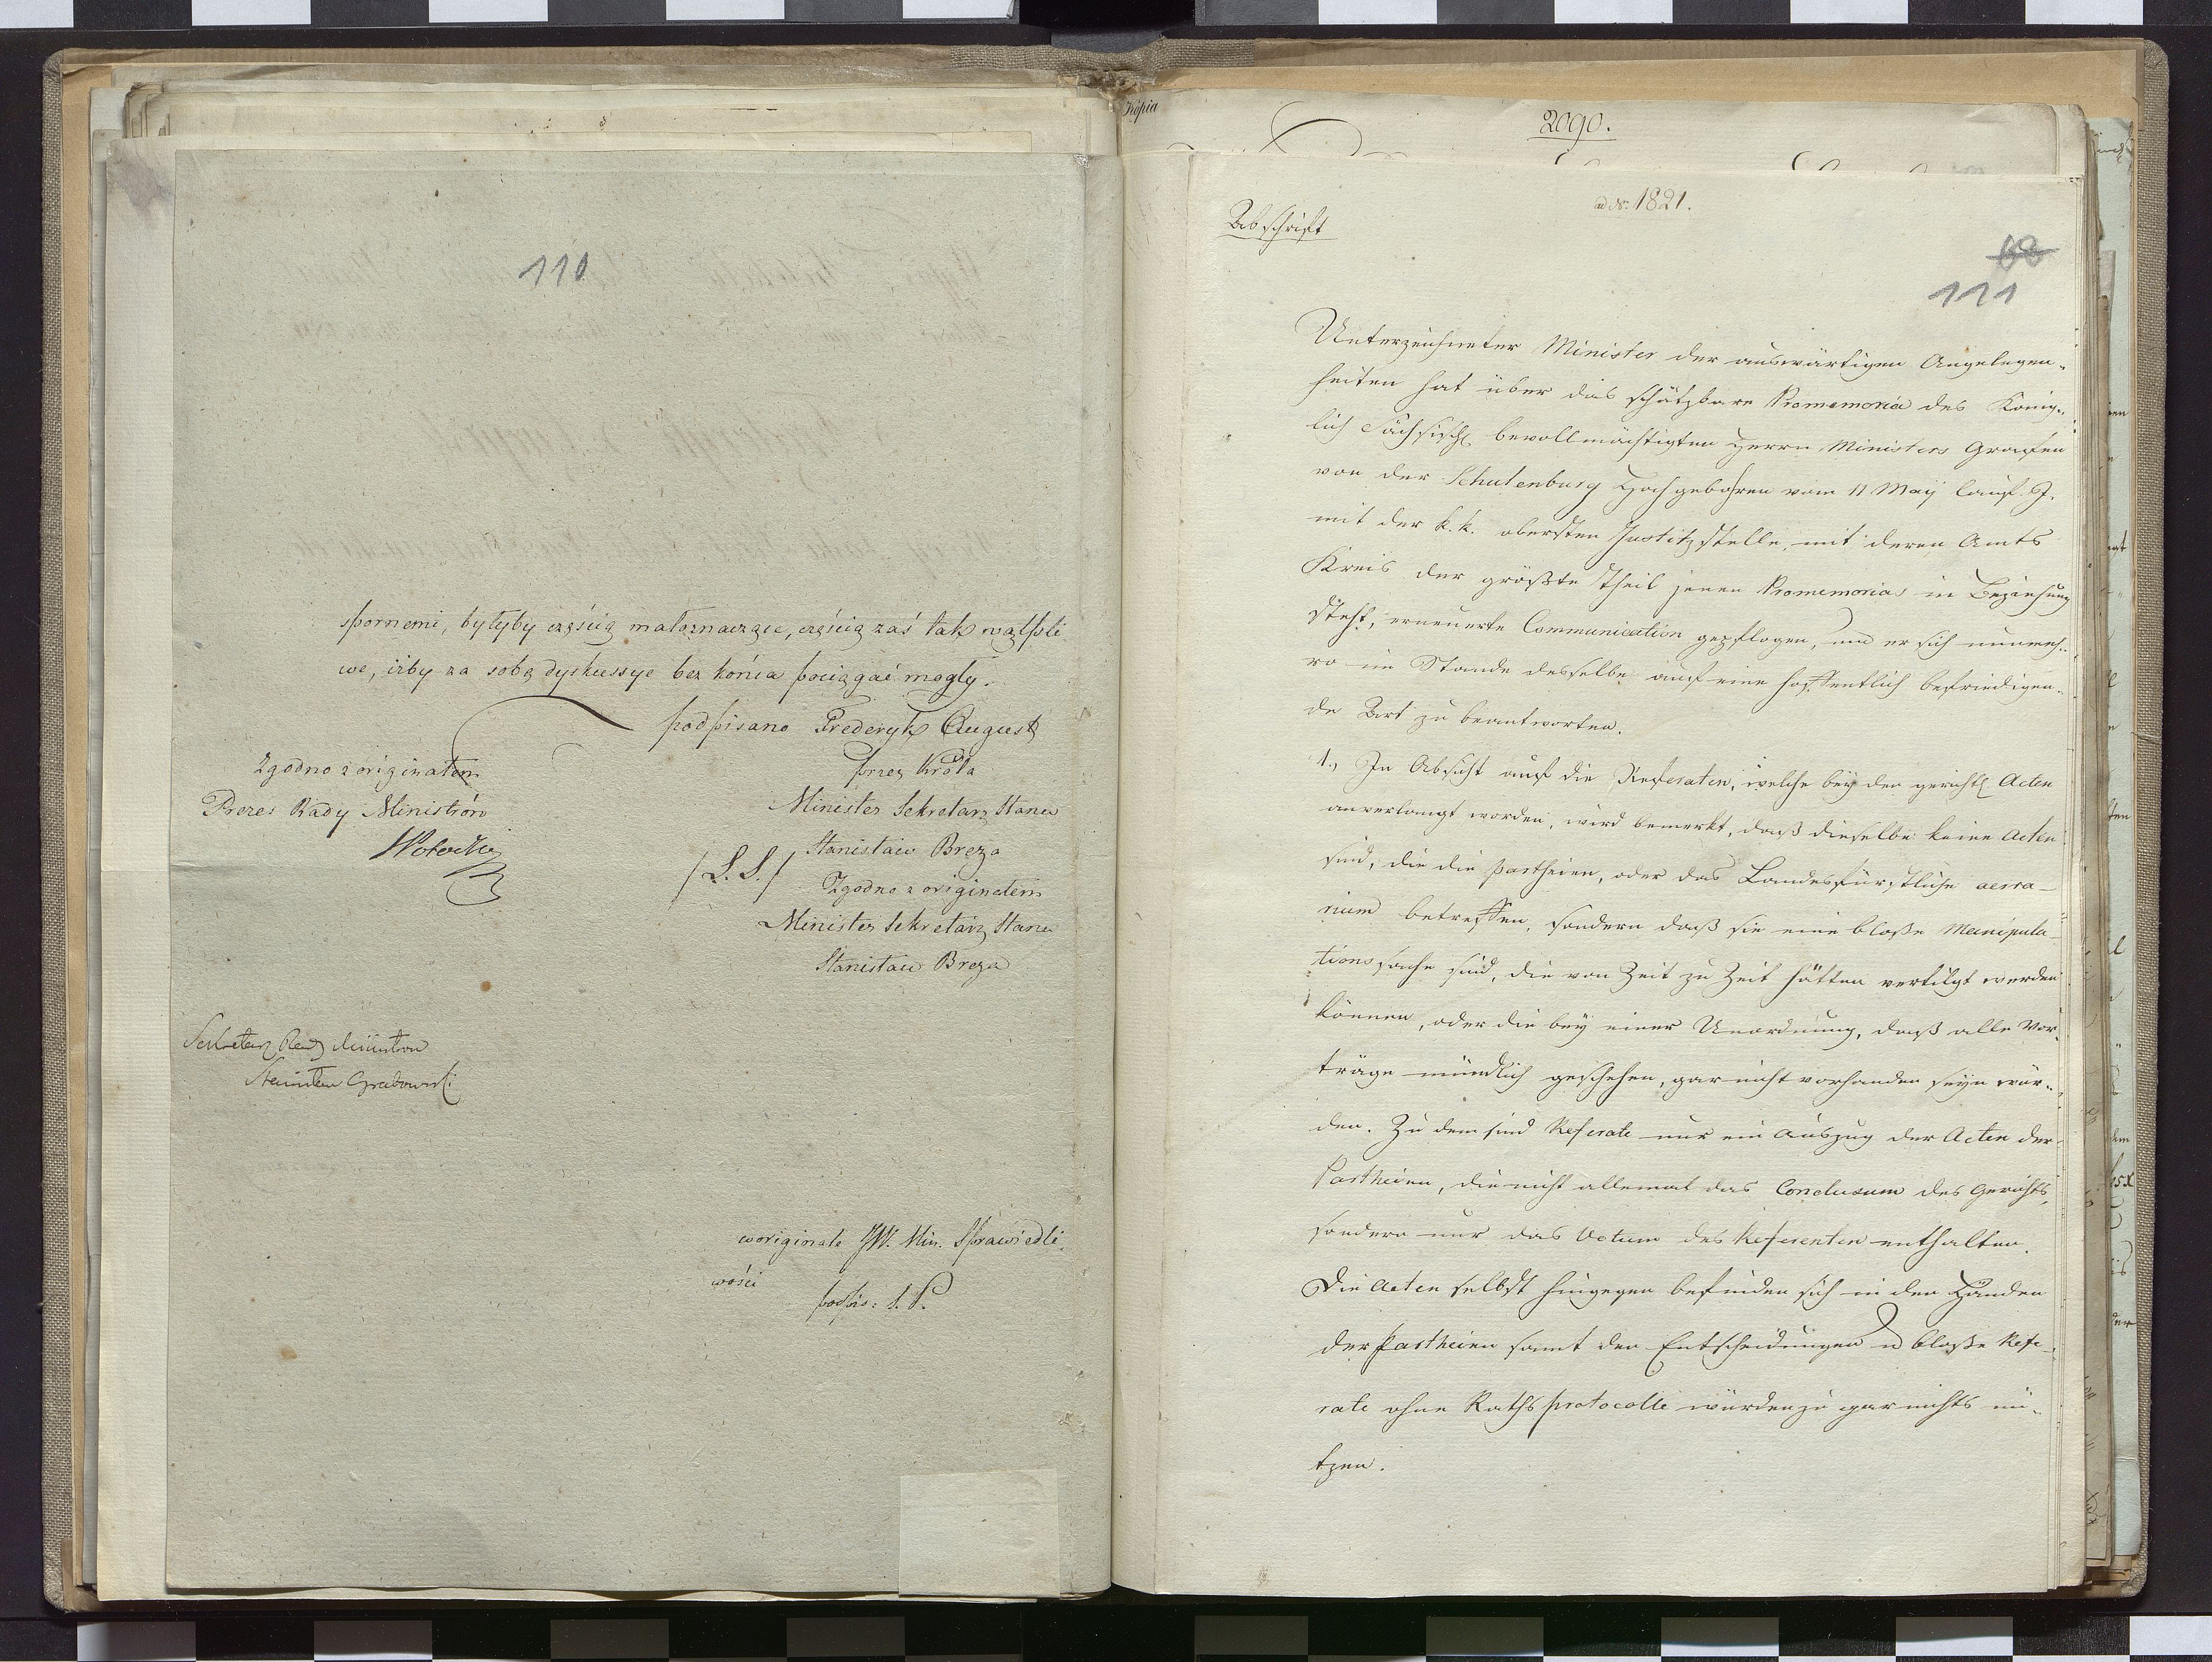 110
spornemi, byłyby częścią małoznaczące, częścią zaś tak wątpli
we, iżby za sobą dyskussye bez końca pociągać mogły.
podpisano Frederyk August
przez Króla
Minister Sekretarz Stanu
Stanisław Breza
/L.S./
Zgodno z originałem
Minister Sekretarz Stanu
Stanisław Breza
Zgodno z originałem
Prezes Rady Ministrów
Potocki
Sekretarz Rady Ministrow
Stanisław Grabowski
w originale JW. Min. Sprawiedli-
wości
podpis: Ł.
Kopia
2090.
ad N: 1821.
Abschrift
68
111
Unterzeichneter Minister der auswärtigen Angelegen-
heiten hat über das schätzbare Promemoria des König-
lich Sächsisch bevollmächtigten Herrn Ministers Grafen
von der Schulenburg Hochgebohren vom 11 Maÿ lauf. J.
mit der k. k. obersten Justitzstelle, mit deren Amts
Kreis der größte Theil jenen Promemorias in Beziehung
steht, erneuerte Communication gepflogen, und er sich nunmeh-
ro im Stande desselbe auf eine hoffentlich befriedigen-
de Art zu beantworten.
1., In Absicht auf die Referaten, welche beÿ den gerichtl Acten
anverlangt worden, wird bemerkt, daß dieselbe keine Acten
sind, die die Partheien, oder das Landesfürstliche aerra-
rium betreffen, sondern daß sie eine bloße Manipula-
tionssache sind, die von Zeit zu Zeit hätten vertilgt werden
können, oder die beÿ einer Anordnung, daß alle Vor-
träge mündlich geschehen, gar nicht vorhanden seÿn wür-
den. Zu dem sind Referate nur ein Auszug der Acten der
Partheien, die nicht allemal das Conclusum des Gerichts,
sondern nur das Votum des Referenten enthalten.
Die Acten selbst hingegen befinden sich in den Händen
der Partheien samt den Entscheidungen u bloße Refe-
rate ohne Rathsprotocolle würden zu gar nichts nü-
tzen.